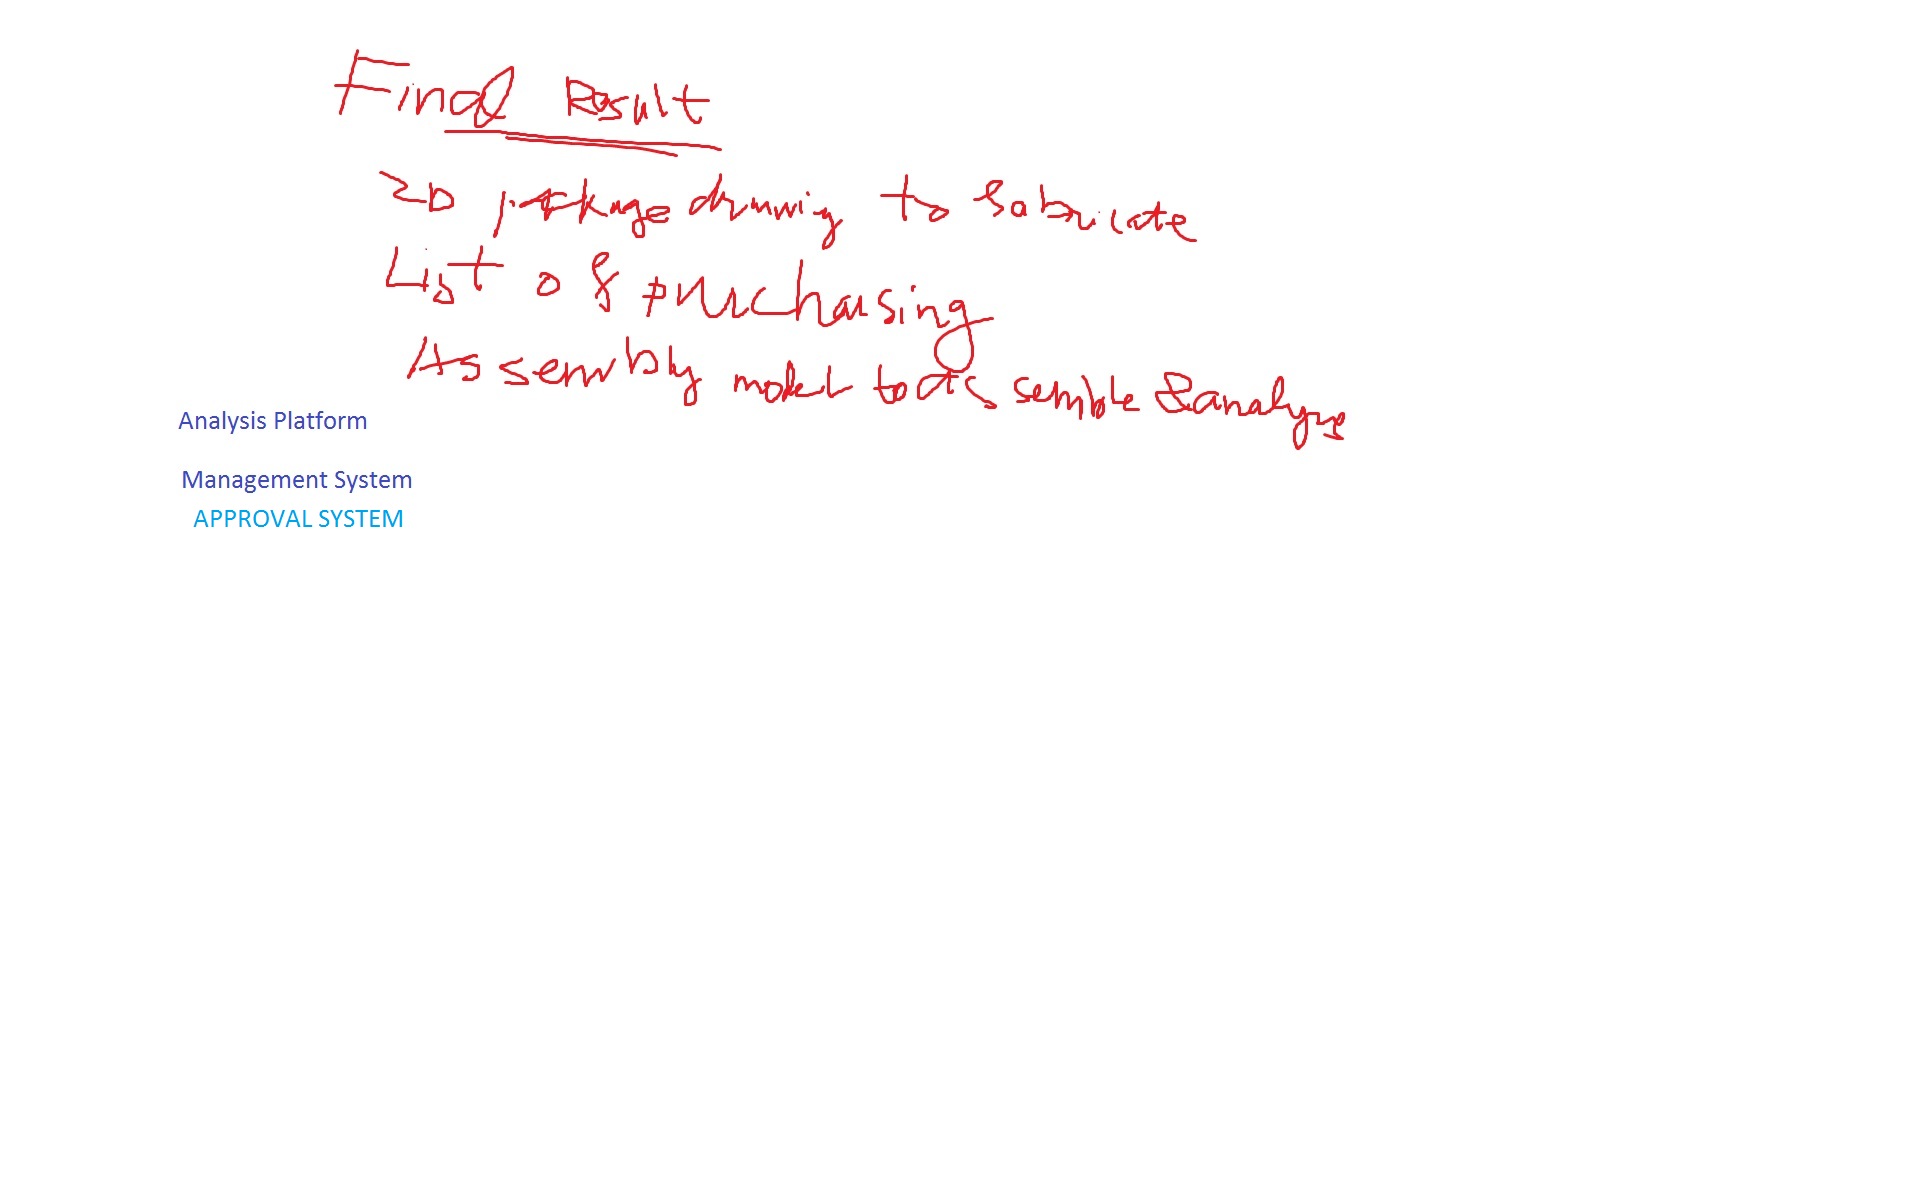 Final Result
2D package drawing to fabricate
List of purchasing
Assembly model to assemble & analyze
Analysis Platform
Management System
APPROVAL SYSTEM